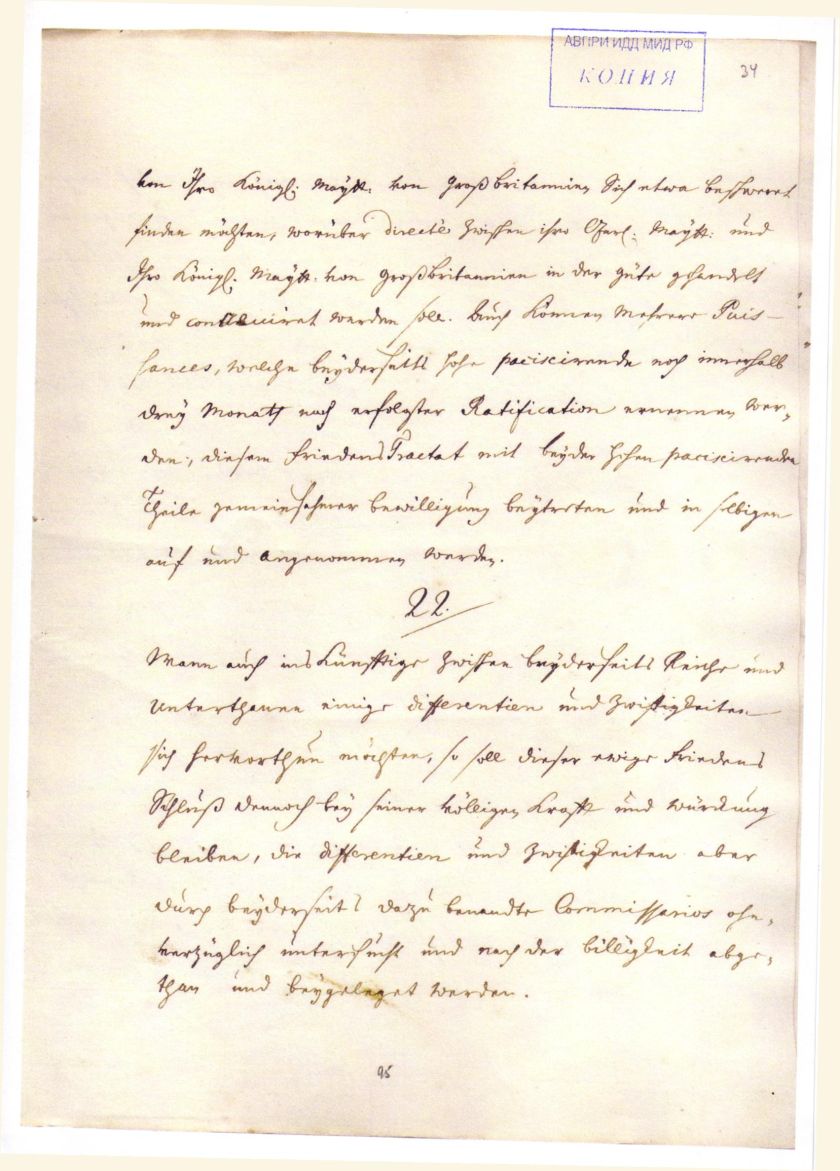 АВПРИ ИДД МИД РФ
КОПИЯ
34
von Ihro Königl: Maytt: von Großbritannien Sich etwa beschweret
finden möchten, worüber directè zwischen ihro Czarl: Maytt: und
Ihro Königl: Maytt: von Großbritannien in der güte gehandelt
und werden solle. Auch können Mehrere Puis-
sances, welche beyderseits hohe paciscirende noch innerhalb
drey Monaths nach erfolgter Ratification ernennen wer,
den, diesem FriedensTractat mit beyder hohen paciscirenden
Theile gemeinsahmer bewilligung beytreten und in selbigen
auf und angenommen werden.
22.
Wann auch ins Künfftige zwischen beyderseits Reiche und
Unterthanen einige differentien und Zwistigkeiten
sich hervorthun möchten, so soll dieser ewige Friedens
Schluß dennoch bey seiner völligen Krafft und würckung
bleiben, die differentien und Zwistigkeiten aber
durch beyderseits dazu benandte Commissarios ohn,
verzüglich untersucht und nach der billigkeit abge,
than und beygeleget werden.
95